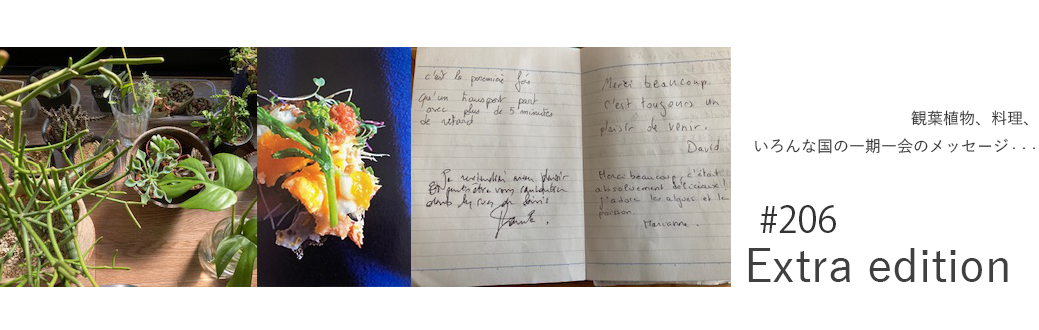 c'est la première fois
qu'un transport part
avec plus de 5 minutes
de retard
Je reviendrai avec plaisir
Et peut être vous
dans les rues de
Merci beaucoup.
C'est toujours un
plaisir de venir.
David
Merci beaucoup, c'était
absolument délicieux !
J'adore les algues et le
poisson.
Marianne.
観葉植物、料理、
いろんな国の一期一会のメッセージ...
#206
Extra edition